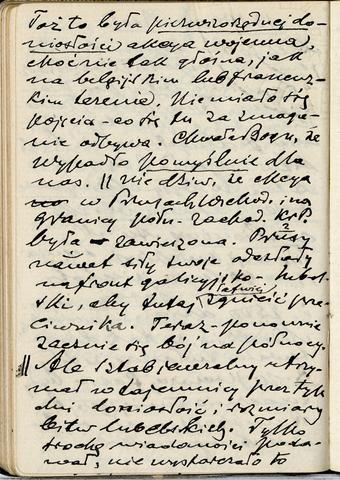 Toż to była pierwszorzędnej do-
niosłości akcya wojenna,
choć nie tak głośna, jak
na belgijskim lub francuz-
kim terenie. Nie miało się
pojęcia - co się tu za zmaga-
nie odbywa. Chwała Bogu, że
wypadło pomyślnie dla
nas. || nie dziw, że akcya
w Prusach Wschod. i na
granicy półn. zachod. K.P.
była zawieszona. Prusy
nawet siły swoje odesłały
na front galicyjsko-lubel-
ski, aby tutaj łatwiej zgnieść prze-
ciwnika. Teraz - ponownie
zacznie się bój na północy.
|| Ale sztab jeneralny utrzy-
mał w tajemnicy przez tyle
dni doniosłość i rozmiary
bitw lubelskich. Tylko
trochę wiadomości poda-
wał, nie wystarczało to